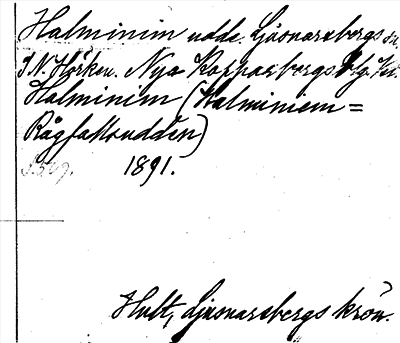 Halminim udde. Ljusnarsbergs sn,
I N. Hörken. Nya Kopparbergs
Halminim (Halminiem =
Rågfallsudden)
S. 549. 1891.
Hult, Ljusnarsbergs krön.